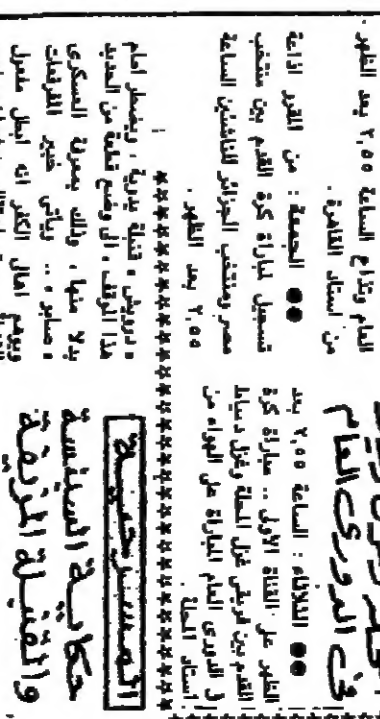 فى الدورى العام
●● الثلاثاء : الساعة ٢,٥٥ بعد
الظهر على القناة الأولى .. مباراة كرة
القدم بين فريقى غزل المحلة وغزل دمياط
فى الدورى العام المباراة على الهواء من
استاد المحلة .
العام وتذاع الساعة ٢,٥٥ بعد الظهر
من استاد القاهرة .
●● الجمعة : من المقرر اذاعة
تسجيل لمباراة كرة القدم بين منتخب
مصر ومنتخب الجزائر للناشئين الساعة
٢,٥٥ بعد الظهر .
المسرحية
حكاية السنيسة
والقنبلة المزيفة
« درويش » قنبلة يدوية ، ويضطر امام
هذا الموقف ، الى وضع قطعة من الحديد
بدلا منها ، وذلك بمعرفة العسكرى
« صابر » .. ويأتى خبير المفرقعات
ويوهم اهالى الكفر انه ابطل مفعول